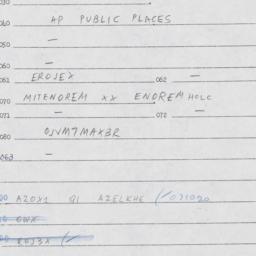 030
040 AP PUBLIC PLACES
050 —
060 —
061 EROJEX 062 —
070 MITENOREM XX ENOREM HOLC
071 — 072 —
080 OJVM7MAX3R
063 —
00 AZOX1 QI AZELKHE (/071020
10 GWX
00 ROJ3X (/